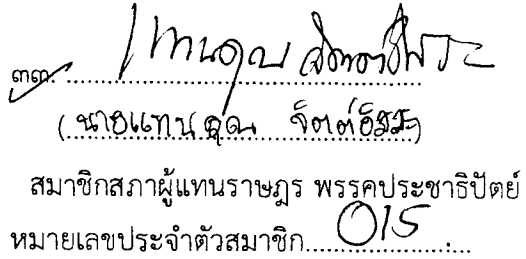 ๓๓. แทนคุณ จิตต์อิสระ
(นายแทนคุณ จิตต์อิสระ)
สมาชิกสภาผู้แทนราษฎร พรรคประชาธิปัตย์
หมายเลขประจำตัวสมาชิก 015